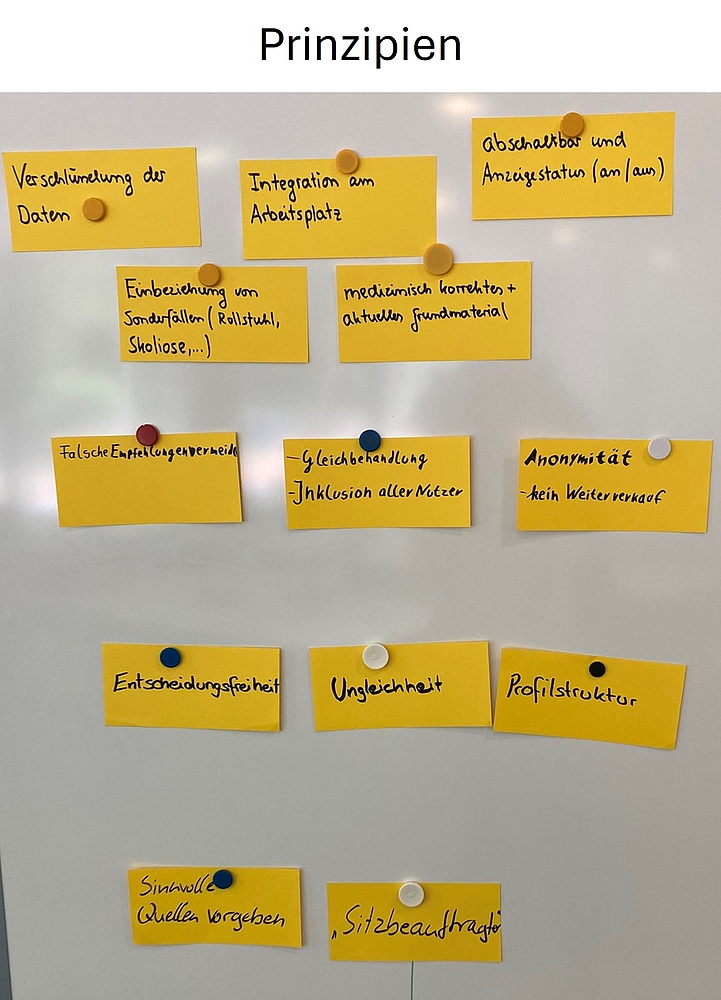 Prinzipien
Verschlüsselung der
Daten
Integration am
Arbeitsplatz
abschaltbar und
Anzeigestatus (an/aus)
Einbeziehung von
Sonderfällen (Rollstuhl,
Skoliose,...)
medizinisch korrektes +
aktuelles Grundmaterial
Falsche Empfehlungen vermeide
- Gleichbehandlung
- Inklusion aller Nutzer
Anonymität
- kein Weiterverkauf
Entscheidungsfreiheit
Ungleichheit
Profilstruktur
Sinnvolle
Quellen vorgeben
„Sitzbeauftragte